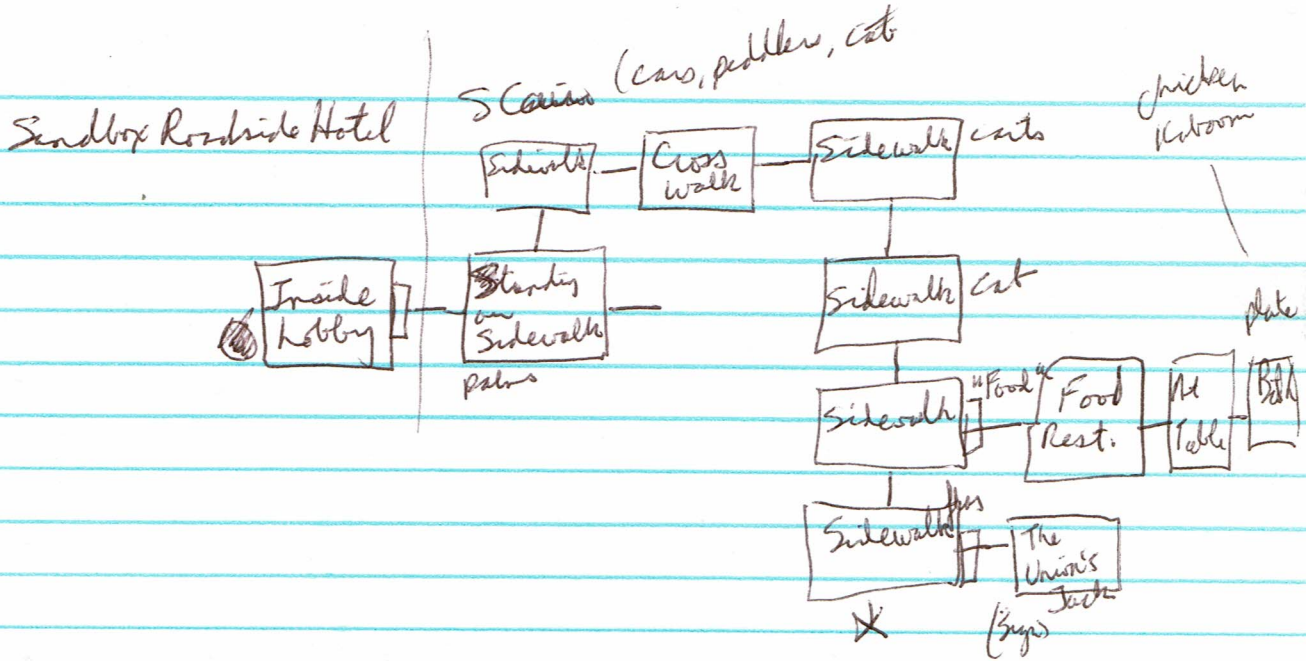 Sandbox Roadside Hotel
(cars, peddlers, cat
chicken
Kaboom
Sidewalk
Cross
walk
Sidewalk
carts
Inside
Lobby
Standing
on
Sidewalk
palms
Sidewalk
cat
plate
Sidewalk
"Food"
Food
Rest.
At
Table
Sidewalk
The
Union's
Jack
(Sign)